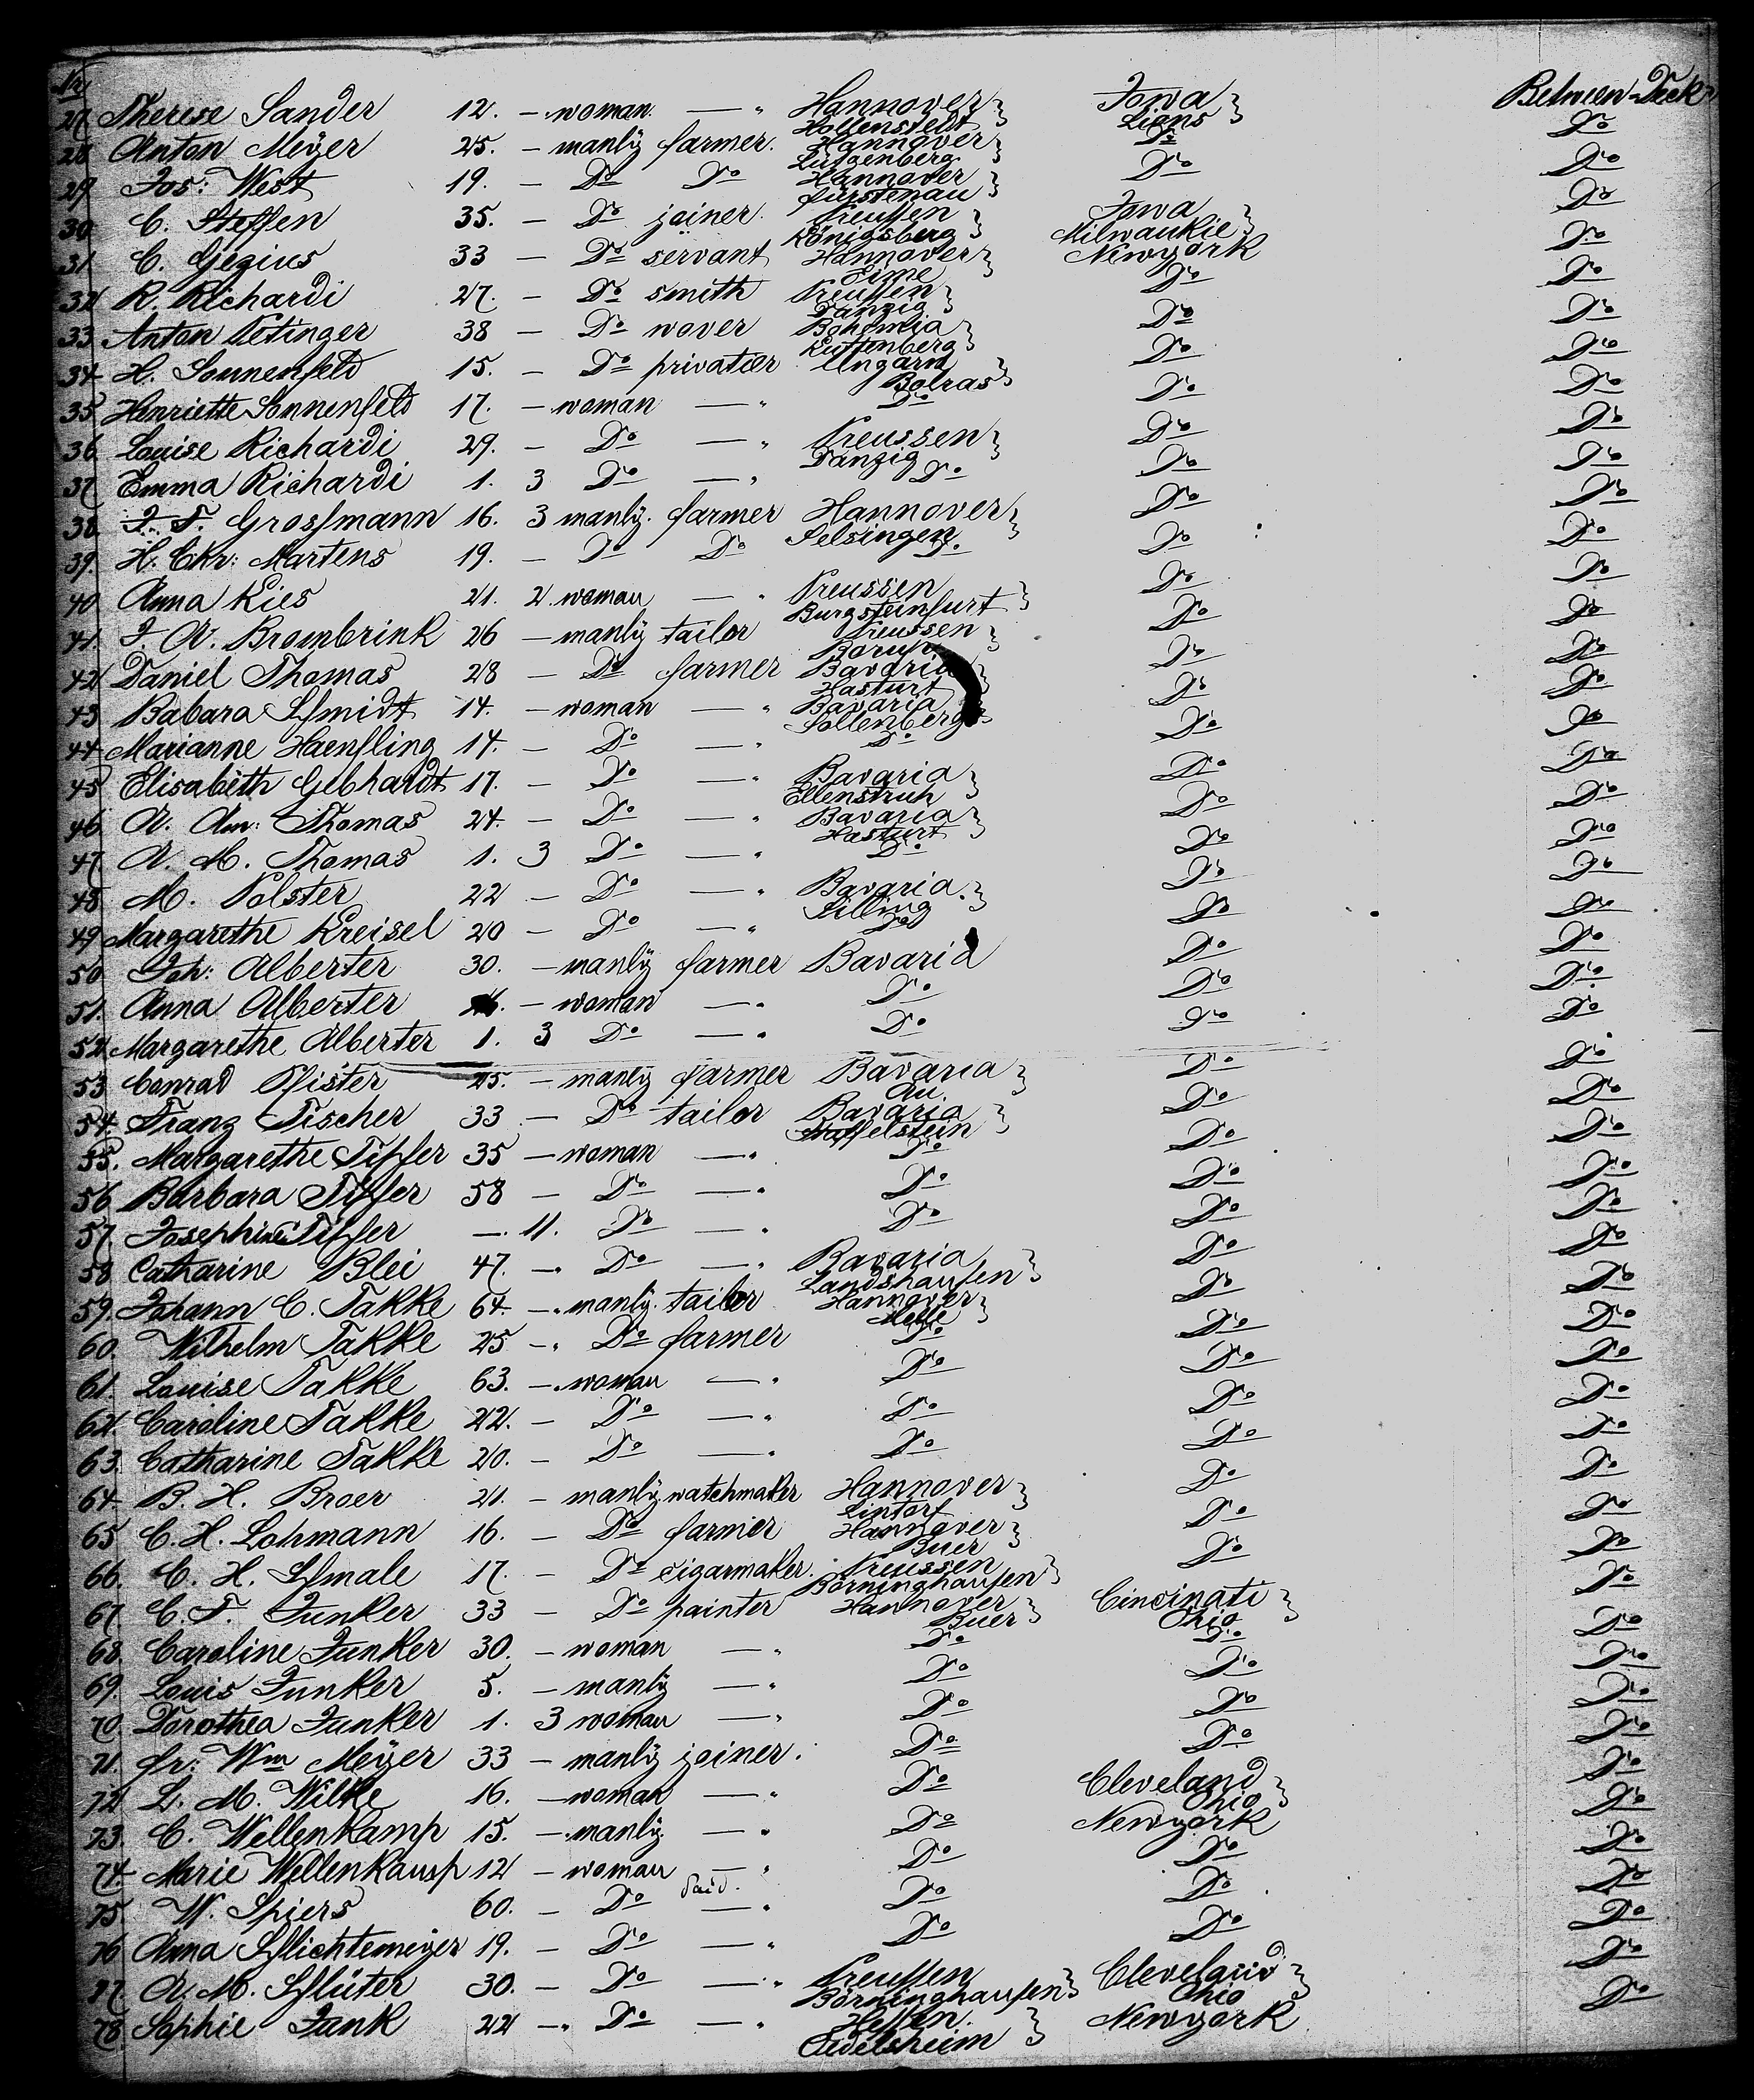 Nr
27 Therese Sander 12. - woman. - " Hannover Hollenstedt } Iowa Lions } Between Deck
28 Anton Meÿer 25. - manlÿ farmer. Hannover Lütgenberg } Do Do
29 Jos: West 19. - Do Do Hannover Fürstenau } Do Do
30 C. Steffen 35. - Do joiner. Preussen Königsberg } Iowa Milwaukie } Do
31 C. Gezius 33 - Do servant Hannover Eime } Newyork Do
32 R. Richardi 27. - Do smith Preussen Danzig } Do Do
33 Anton Petinger 38 - Do wover Bohemia Kuttenberg } Do Do
34 H. Sonnenfeld 15. - Do privatier Ungarn Bolras } Do Do
35 Henriette Sonnenfeld 17. - woman - " Do Do Do
36 Louise Richardi 29. - Do - " Preussen Danzig } Do Do
37 Emma Richardi 1. 3 Do - " Do Do Do
38. J. F. Grossmann 16. 3 manlÿ. farmer Hannover Selsingen } Do Do
39. H. Chr: Martens 19. - Do Do Do. Do Do
40 Anna Kies 21. 2. woman - " Preussen Burgsteinfurt } Do Do
41. F. W. Brombrink 26 - manlÿ tailor Preussen } Do Do
42 Daniel Thomas 28 - Do farmer Bavaria Hasfurt } Do Do
43 Babara Schmidt 14. - woman - " Bavaria Sollenberg } Do Do
44 Marianne Haensling 14. - Do - " Do Do Do
45 Elisabeth Gebhardt 17. - Do - " Bavaria Ellenstruh } Do Do
46 A. Am: Thomas 24. - Do - " Bavaria Hasfurt } Do Do
47 A. M. Thomas 1. 3 Do - " Do Do Do
48 M. Polster 22 - Do - " Bavaria. Silling } Do Do
49 Margarethe Kreisel 20 - Do - " Do Do Do
50 Joh: Alberter 30. - manlÿ farmer Bavaria Do Do
51. Anna Alberter - woman - " Do Do Do
52 Margarethe Alberter 1. 3 Do - " Do Do Do
53 Conrad Pfister 25. - manlÿ farmer Bavaria Au. } Do Do
54. Franz Fischer 33 - Do tailor Bavaria Staffelstein } Do Do
55. Margarethe Tipfer 35 - woman - " Do Do Do
56 Barbara Tipfer 58 - Do - " Do Do Do
57 Josephine Tipfer - 11. Do - " Do Do Do
58 Catharine Blei 47. - Do - " Bavaria Landshausen } Do Do
59. Johann C. Takke 64 - manlÿ. tailor Hannover Melle } Do Do
60. Wilhelm Takke 25 - Do farmer Do Do Do
61. Louise Takke 63. - woman - " Do Do Do
62. Caroline Takke 22. - Do - " Do Do Do
63. Catharine Takke 20. - Do - " Do Do Do
64. B. H. Broer 21. - manlÿ watchmaker Hannover Lintorf } Do Do
65 C. H. Lohmann 16. - Do farmer Hannover Buer } Do Do
66. C. H. Schmale 17. - Do cigarmaker. Preussen Börninghausen } Do Do
67. C. F. Junker 33 - Do painter Hannover Buer } Cincinati Ohio } Do
68. Caroline Junker 30. - woman - " Do Do Do
69. Louis Junker 5. - manlÿ - " Do Do Do
70. Dorothea Junker 1. 3 woman - " Do Do Do
71. Fr: Wm Meÿer 33 - manlÿ joiner. Do Do Do
72 L. M. Wilke 16. - woman - " Do Cleveland Ohio } Do
73. C. Wellenkamp 15. - manlÿ. - " Do Newyork Do
74. Marie Wellenkamp 12 - woman - " Do Do Do
75 W. Spiers 60. - Do - " Do Do Do
76 Anna Schlichtemeÿer 19. - Do - " Do Do Do
77 A. M. Schlüter 30. - Do - " Preussen Börninghausen } Cleveland Ohio } Do
78. Sophie Fank 22 - Do - " Hessen. Oedelsheim } Newyork Do